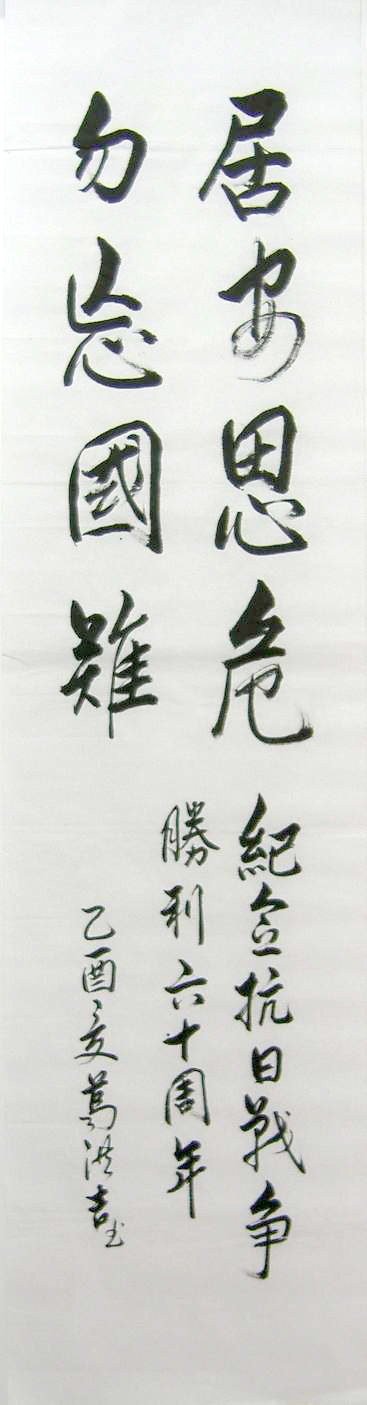 居安思危
勿忘國難
紀念抗日戰争
勝利六十周年
乙酉之夏葛洪吉书